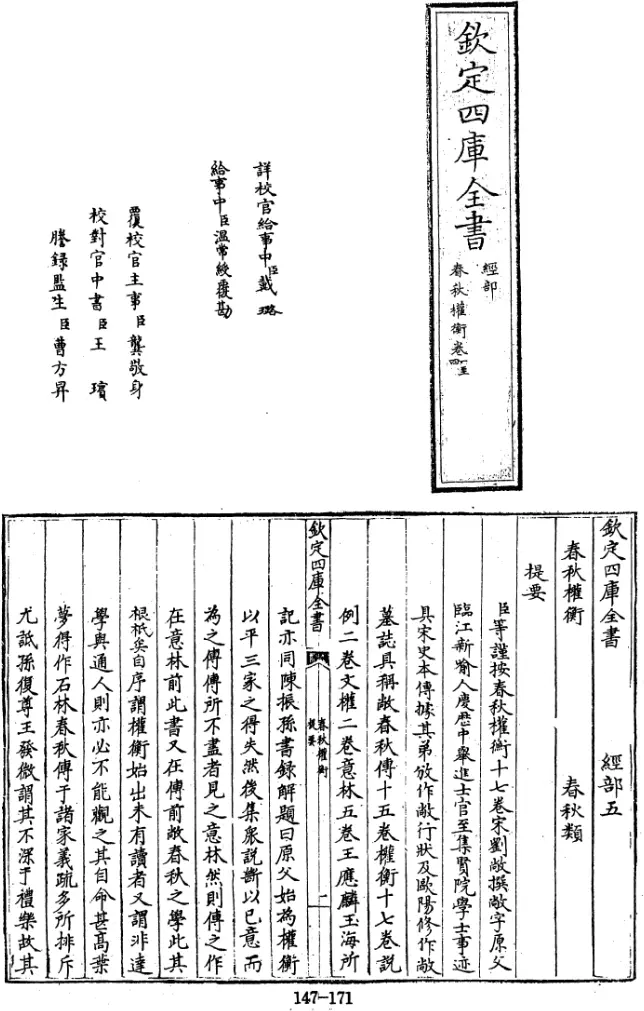 欽定四庫全書
經部
春秋權衡卷
詳校官給事中臣戴璐
給事中臣溫常綬覆勘
覆校官主事臣龔敬身
校對官中書臣王瑸
謄錄監生臣曹方昇
欽定四庫全書 經部五
春秋權衡 春秋類
提要
臣等謹按春秋權衡十七卷宋劉敞撰敞字原父
臨江新喻人慶厯中舉進士官至集賢院學士事迹
具宋史本傳據其弟攽作敞行狀及歐陽修作敞
墓誌具稱敞春秋傳十五卷權衡十七卷說
例二卷文權二卷意林五卷王應麟玉海所
欽定四庫全書
春秋權衡
提要
一
記亦同陳振孫書録解題曰原父始為權衡
以平三家之得失然後集衆說斷以已意而
為之傳傳所不盡者見之意林然則傳之作
在意林前此書又在傳前敞春秋之學此其
根柢矣自序謂權衡始出未有讀者又謂非達
學與通人則亦必不能觀之其自命甚高葉
夢得作石林春秋傳于諸家義疏多所排斥
尤詆孫復尊王發微謂其不深于禮樂故其
147-171